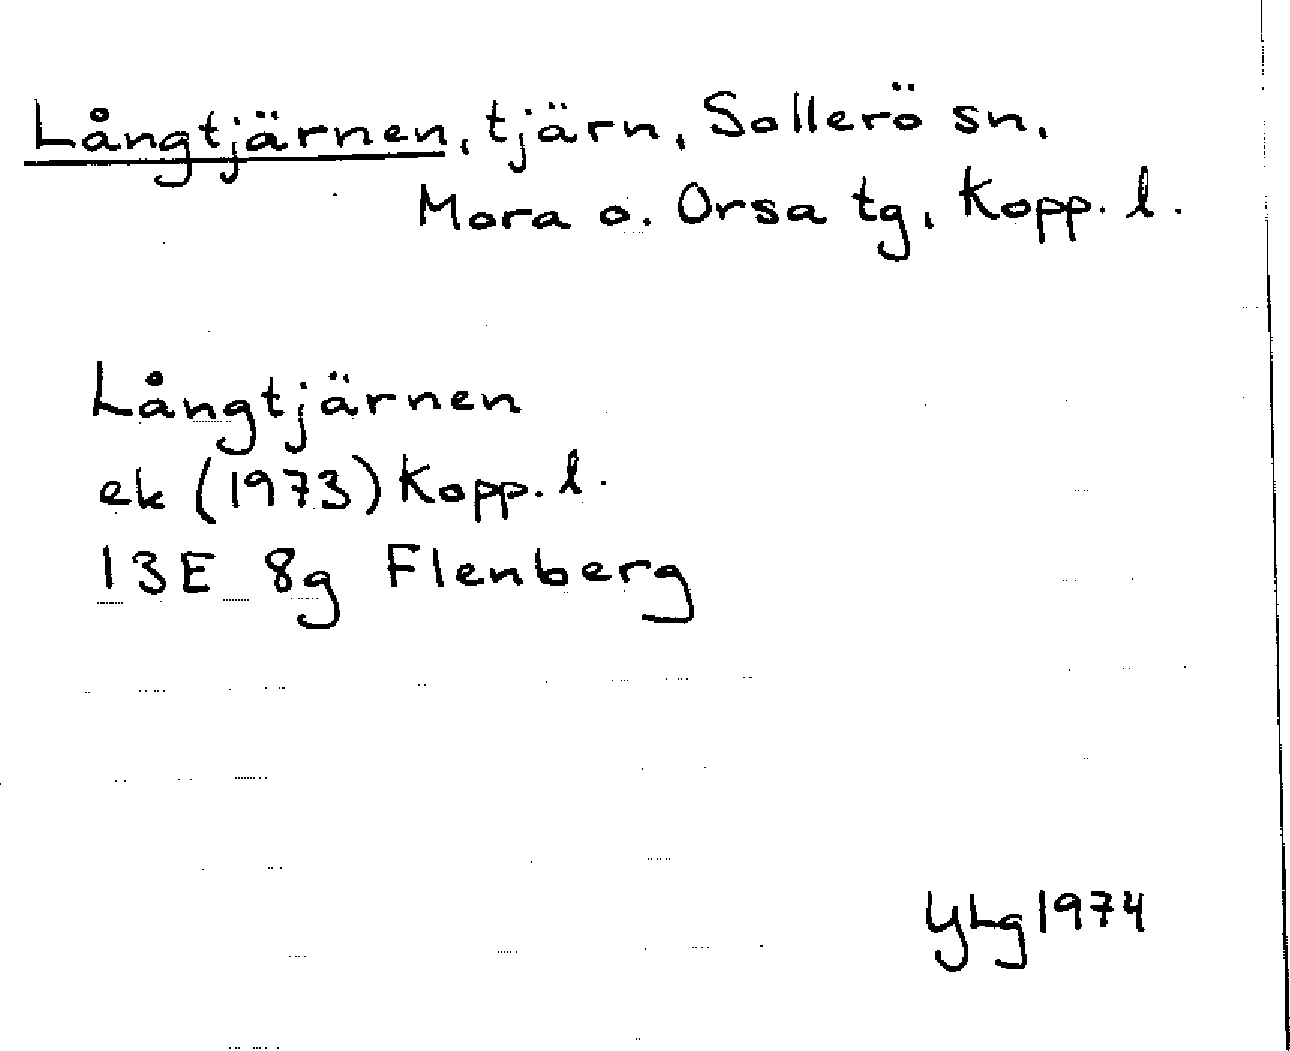 Långtjärnen, tjärn, Sollerö sn,
Mora o. Orsa tg, Kopp. l.
Långtjärnen
ek (1973) Kopp. l.
13E 8g Flenberg
YLg 1974